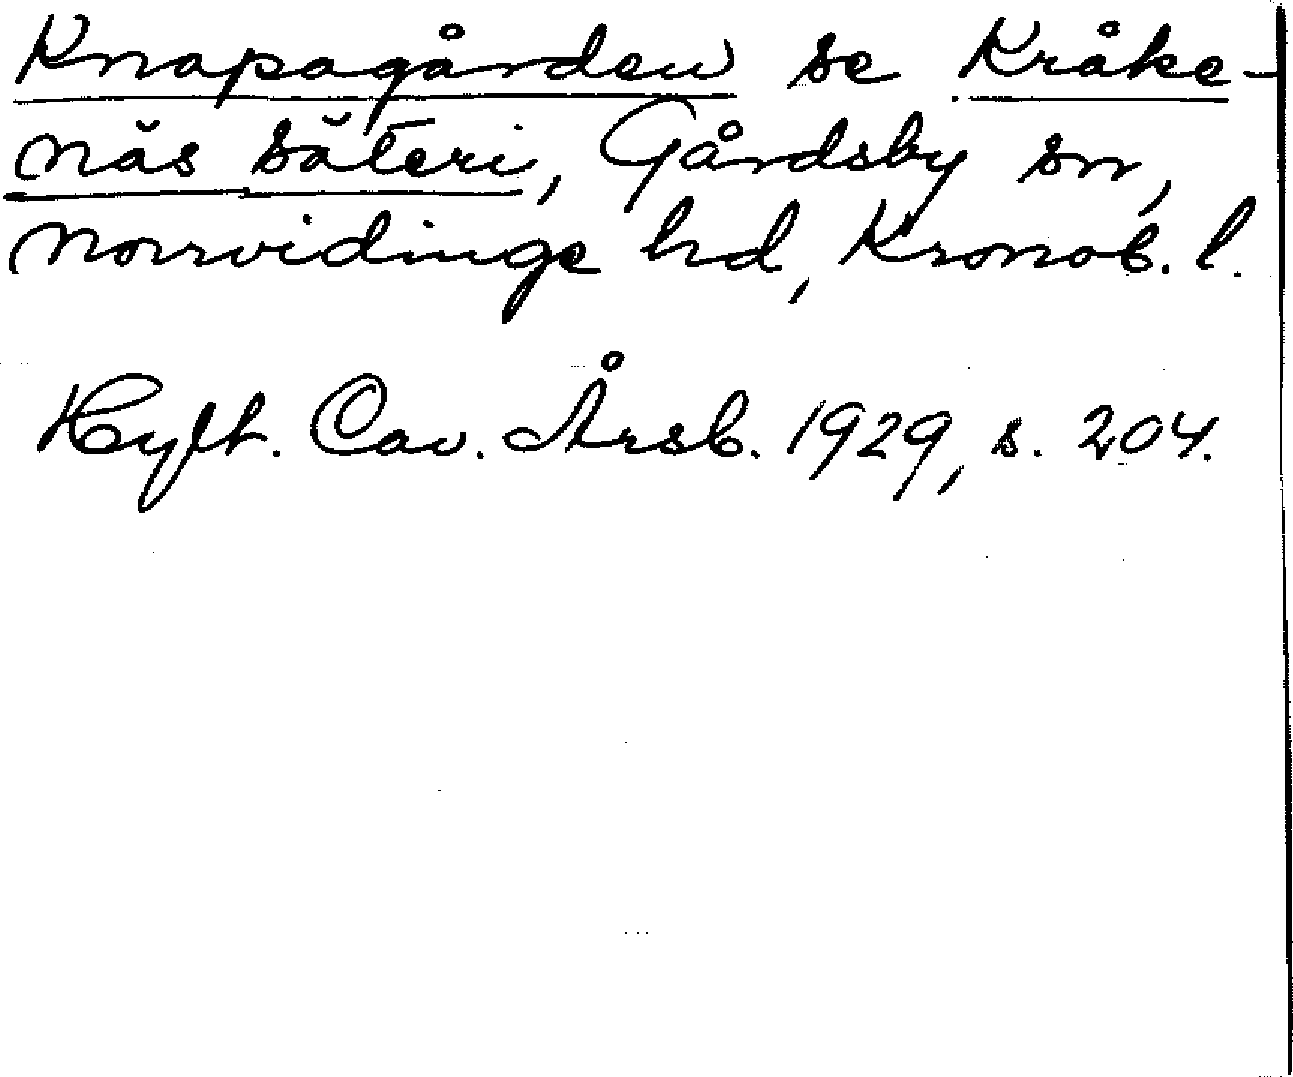 Knapagården se Kråke-
näs säteri, Gårdsby sn,
Norrvidinge hd, Kronob. l.
Hylt. Cav. Årsb. 1929, s. 204.